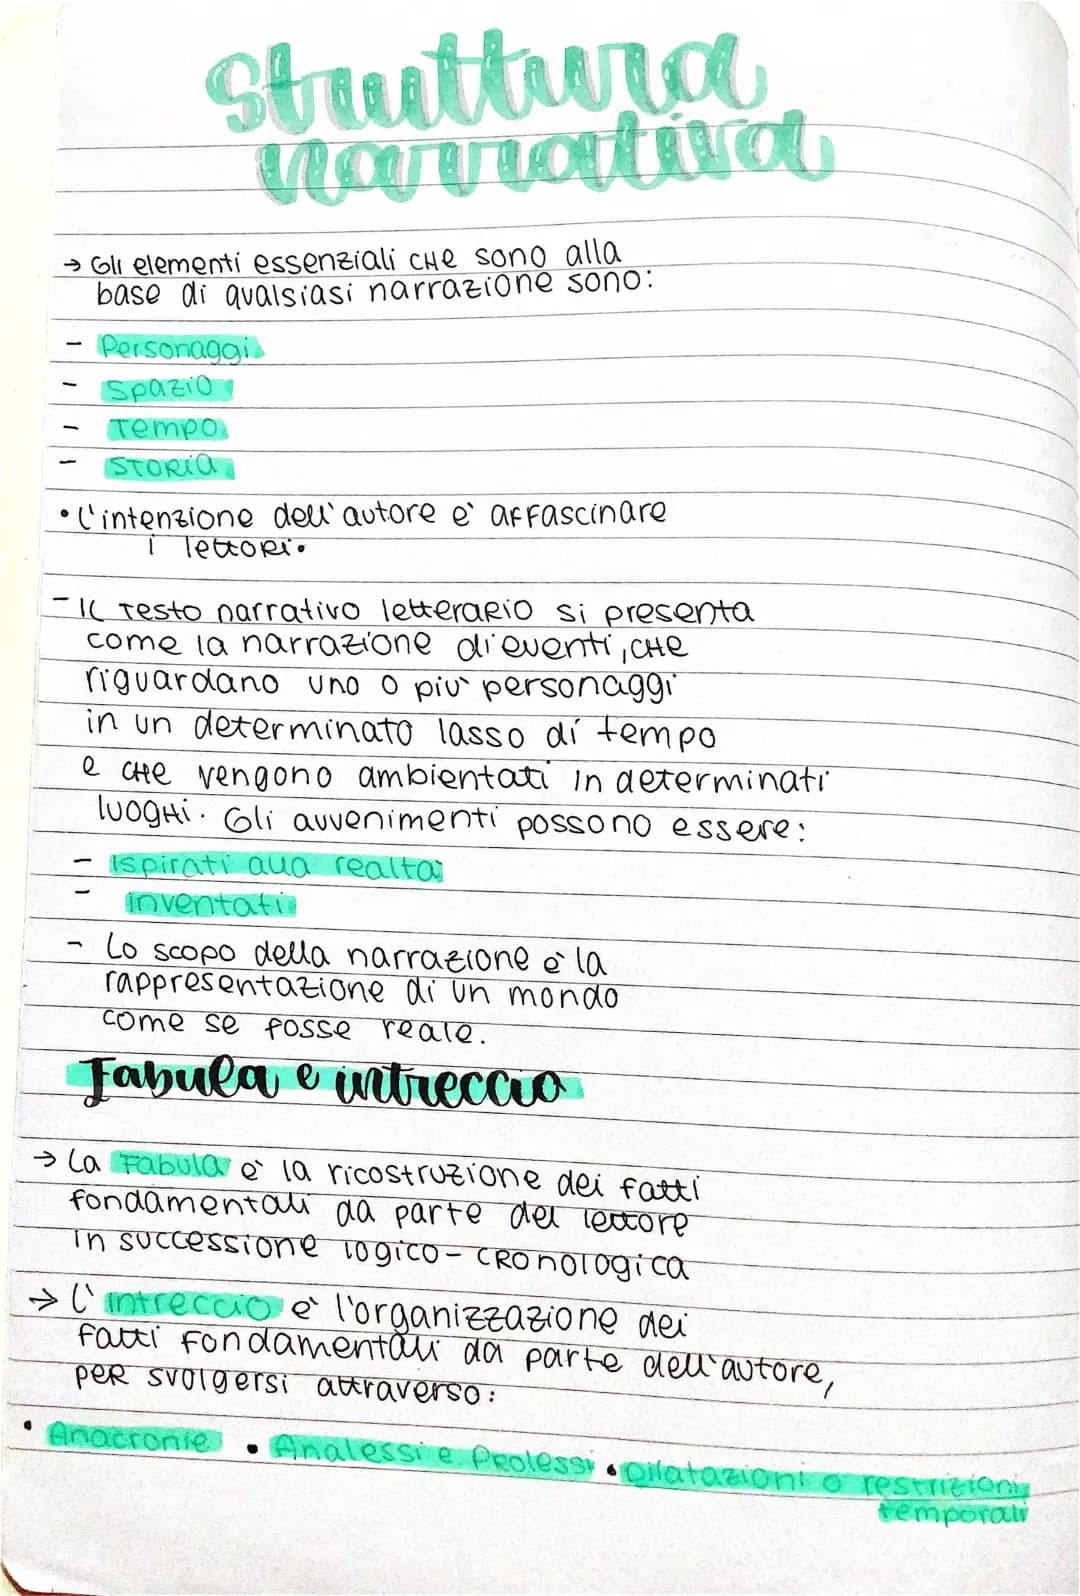 Struttura
narrativa
→ Gli elementi essenziali che sono alla
base di qualsiasi narrazione sono:
- Personaggi
- Spazio
- Tempo
- Storia
• L'intenzione dell'autore è affascinare
i lettori.
- Il testo narrativo letterario si presenta
come la narrazione di eventi, che
riguardano uno o più personaggi
in un determinato lasso di tempo
e che vengono ambientati in determinati
luoghi. Gli avvenimenti possono essere:
- Ispirati alla realtà
- inventati
- Lo scopo della narrazione è la
rappresentazione di un mondo
come se fosse reale.
Fabula e intreccio
→ La Fabula è la ricostruzione dei fatti
fondamentali da parte del lettore
in successione logico-cronologica
→ L'intreccio è l'organizzazione dei
fatti fondamentali da parte dell'autore,
per svolgersi attraverso:
• Anacronie • Analessi e Prolessi • Dilatazioni o restrizioni
temporali